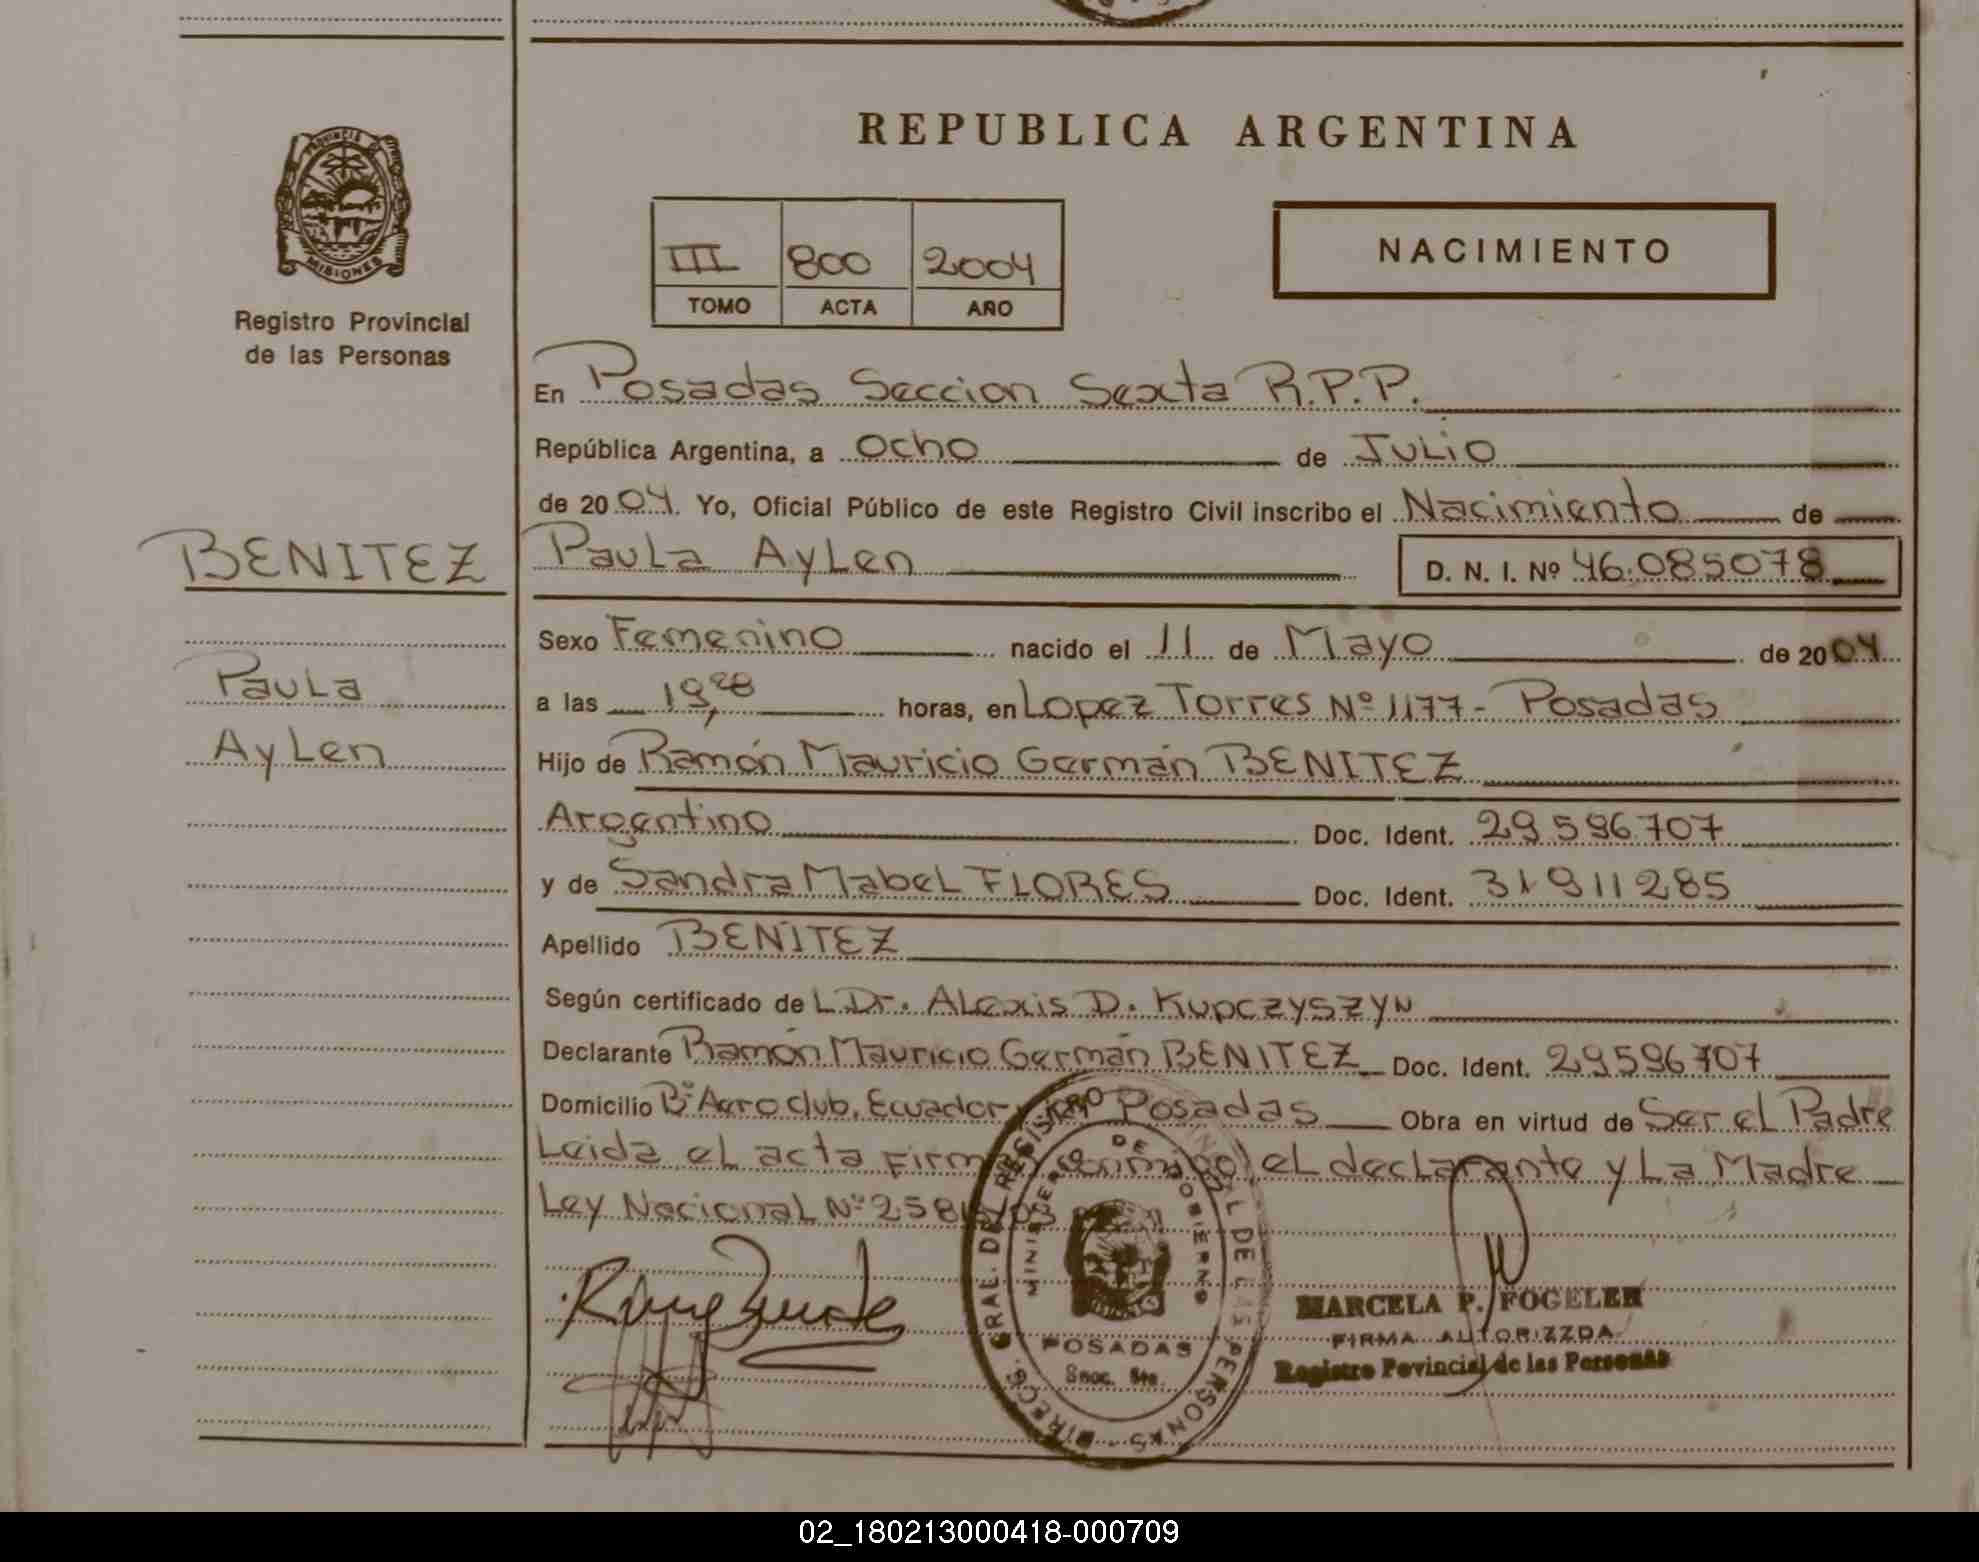 REPUBLICA ARGENTINA
PROVINCIA DE
MISIONES
Registro Provincial
de las Personas
III 800 2004
TOMO ACTA AÑO
NACIMIENTO
En Posadas Seccion Sexta R.P.P.
República Argentina, a ocho de JULIO
de 2004. Yo, Oficial Público de este Registro Civil inscribo el Nacimiento de
BENITEZ
Paula Aylen D. N. I. Nº 46.085078
Sexo Femenino nacido el 11 de Mayo de 2004
Paula
a las 19,28 horas, en Lopez Torres Nº 1177- Posadas
Aylen
Hijo de Ramón Mauricio Germán BENITEZ
Argentino Doc. Ident. 29.596.707
y de Sandra Mabel FLORES Doc. Ident. 31911285
Apellido BENITEZ
Según certificado de L.Dr. Alexis D. Kupczyszyn
Declarante Ramón Mauricio Germán BENITEZ Doc. Ident. 29596707
Domicilio Bº Aeroclub, Ecuador Posadas Obra en virtud de Ser el Padre
Leida el acta Firma conmigo el declarante y La Madre
Ley Nacional Nº
DIRECC. GRAL. DEL REGISTRO PROVINCIAL DE LAS PERSONAS
MINISTERIO DE GOBIERNO
POSADAS
Secc. 6ta.
MARCELA P. FOGELER
FIRMA AUTORIZZDA
Registro Povincial de las Personas
02_180213000418-000709